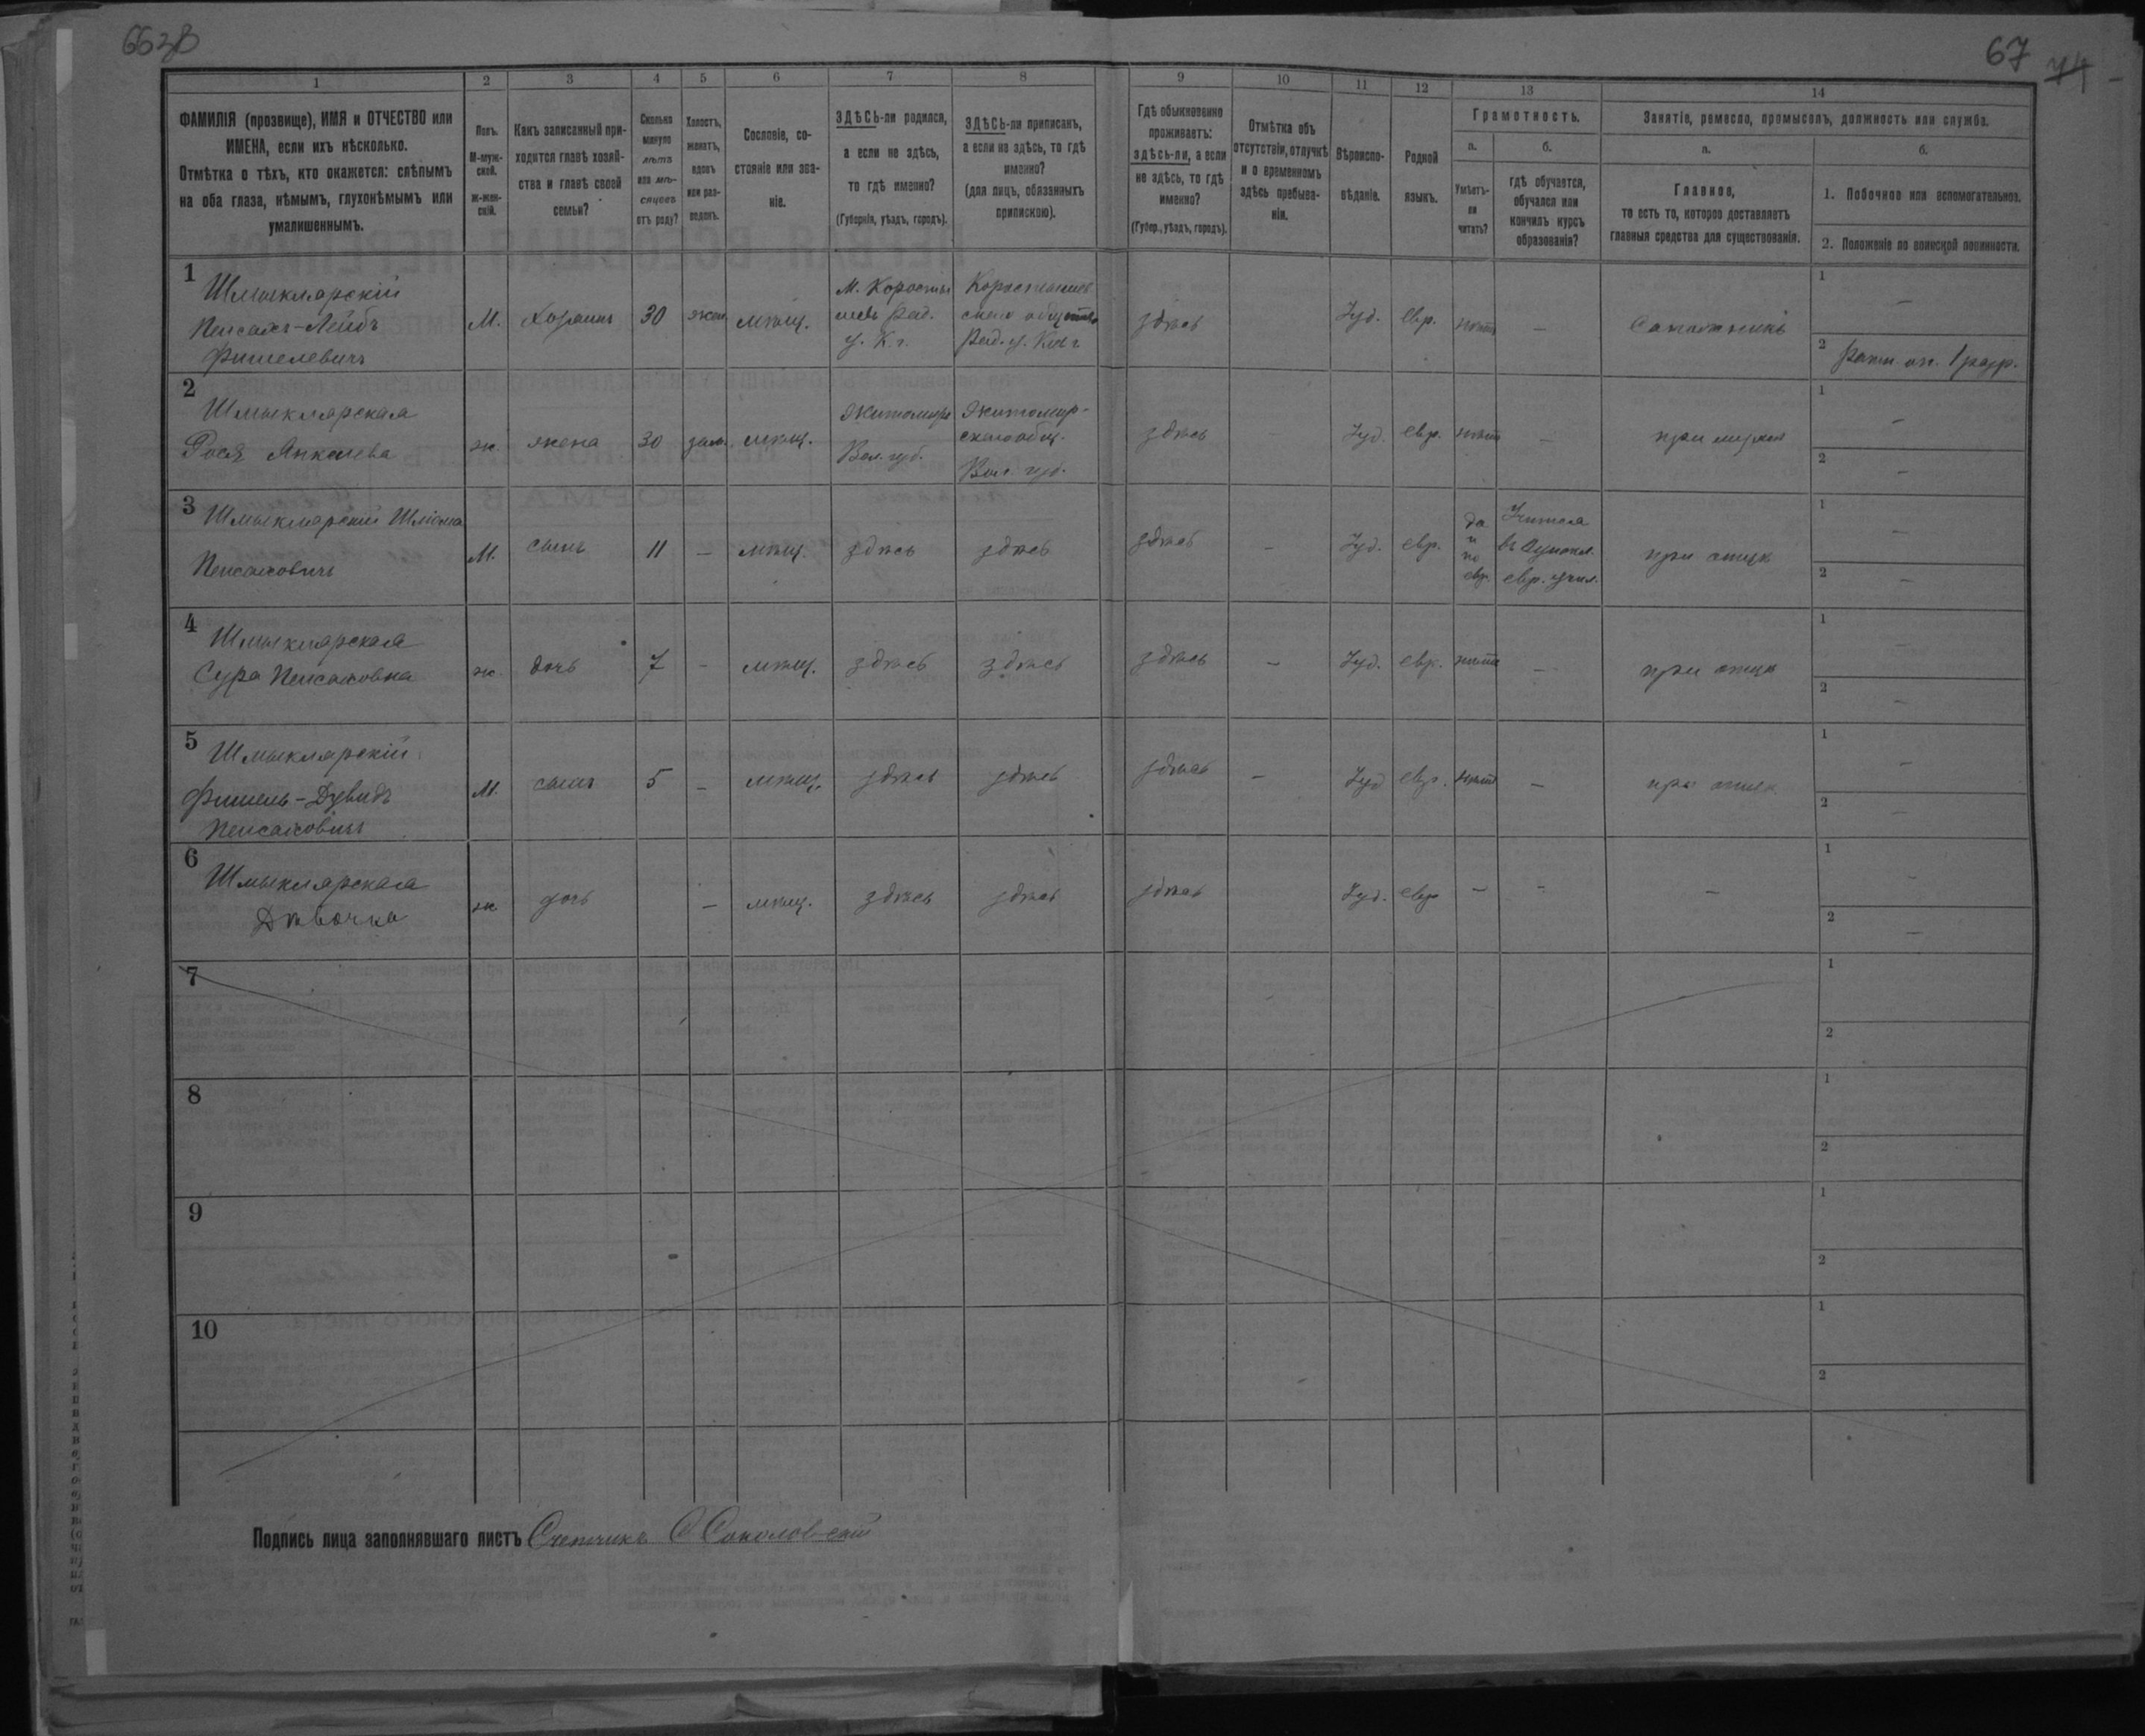 663В
67
74
1
2
3
4
5
6
7
8
9
10
11
12
13
14
ФАМИЛІЯ (прозвище), ИМЯ и ОТЧЕСТВО или
ИМЕНА, если ихъ нѣсколько.
Отмѣтка о тѣхъ, кто окажется: слѣпымъ
на оба глаза, нѣмымъ, глухонѣмымъ или
умалишеннымъ.
Полъ.
М-муж-
ской.
Ж-жен-
скій.
Какъ записанный при-
ходится главѣ хозяй-
ства и главѣ своей
семьи?
Сколько
минуло
лѣтъ
или мѣ-
сяцевъ
отъ роду?
Холостъ,
женатъ,
вдовъ
или раз-
веденъ.
Сословіе, со-
стояніе или зва-
ніе.
ЗДѢСЬ-ли родился,
а если не здѣсь,
то гдѣ именно?
(Губернія, уѣздъ, городъ).
ЗДѢСЬ-ли приписанъ,
а если не здѣсь, то гдѣ
именно?
(для лицъ, обязанныхъ
припискою).
Гдѣ обыкновенно
проживаетъ:
здѣсь-ли, а если
не здѣсь, то гдѣ
именно?
(Губер., уѣздъ, городъ).
Отмѣтка объ
отсутствіи, отлучкѣ
и о временномъ
здѣсь пребыва-
ніи.
Вѣроиспо-
вѣданіе.
Родной
языкъ.
Грамотность.
а.
б.
Умѣетъ-
ли
читать?
гдѣ обучается,
обучался или
кончилъ курсъ
образованія?
Занятіе, ремесло, промыселъ, должность или служба.
а.
б.
Главное,
то есть то, которое доставляетъ
главныя средства для существованія.
1. Побочное или вспомогательное.
2. Положеніе по воинской повинности.
1
Шмыклярскій
Пейсахъ-Лейбъ
Фишелевичъ
М. Хозяинъ 30 жен. мѣщ.
М. Коросты
шевъ Рад.
у. К. г.
Коростышев
скаго общества
Рад. у. Кіев г
здѣсь Іуд. евр. нѣтъ — Сапожникъ
1 —
2 Ратн. оп. 1 разр.
2
Шмыклярская
Рося Янкелева
ж. жена 30 зам. мѣщ.
Житомиръ
Вол. губ.
Житомир-
скаго общ.
Вол. губ.
здѣсь Іуд. евр. нѣтъ — при мужѣ
1 —
2 —
3
Шмыклярскій Шліома
Пейсаховичъ
М. сынъ 11 — мѣщ. здѣсь здѣсь здѣсь — Іуд. евр.
да
и
по
евр.
въ
евр. учил.
при отцѣ
1 —
2 —
4
Шмыклярская
Сура Пейсаховна
ж. дочь 7 — мѣщ. здѣсь здѣсь здѣсь — Іуд. евр. нѣтъ — при отцѣ
1 —
2 —
5
Шмыклярскій
Фишель-Дувидъ
Пейсаховичъ
М. сынъ 5 — мѣщ. здѣсь здѣсь здѣсь — Іуд евр. нѣтъ — при отцѣ
1 —
2 —
6
Шмыклярская
Дѣвочка
ж. дочь — мѣщ. здѣсь здѣсь здѣсь Іуд. евр — — —
1 —
2 —
7
1
2
8
1
2
9
1
2
10
1
2
Подпись лица заполнявшаго листъ Счетчикъ С Соколовскій